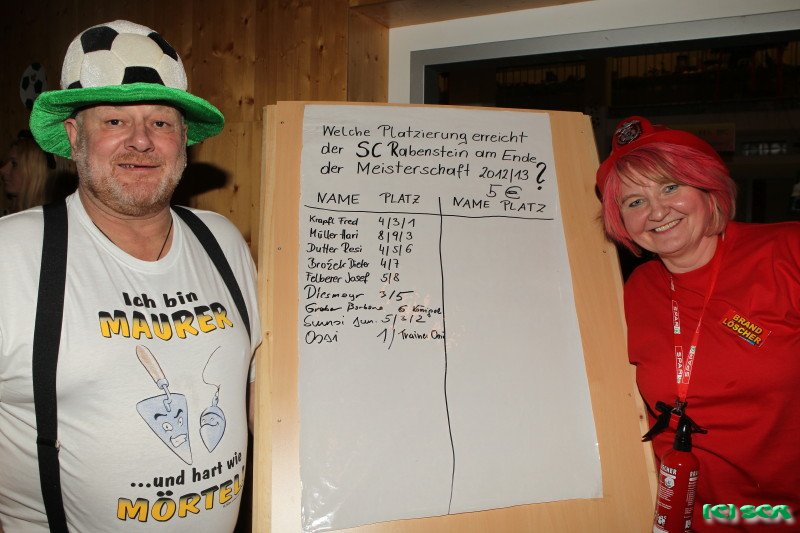 Welche Platzierung erreicht
der SC Rabenstein am Ende
der Meisterschaft 2012/13 ?
5 €
NAME PLATZ
NAME PLATZ
Krapfl Fred 4/3/1
Müller Hari 8/9/3
Dutter Resi 4/5/6
Brožek Dieter 4/7
Felberer Josef 5/8
Diesmayr 3/5
Barbara 6
Sunsi Jun. 5/3/2
Ossi 1/Trainer Ossi
Ich bin
MAURER
...und hart wie
MÖRTEL
BRAND
LÖSCHER
SPAR
(C) SCR